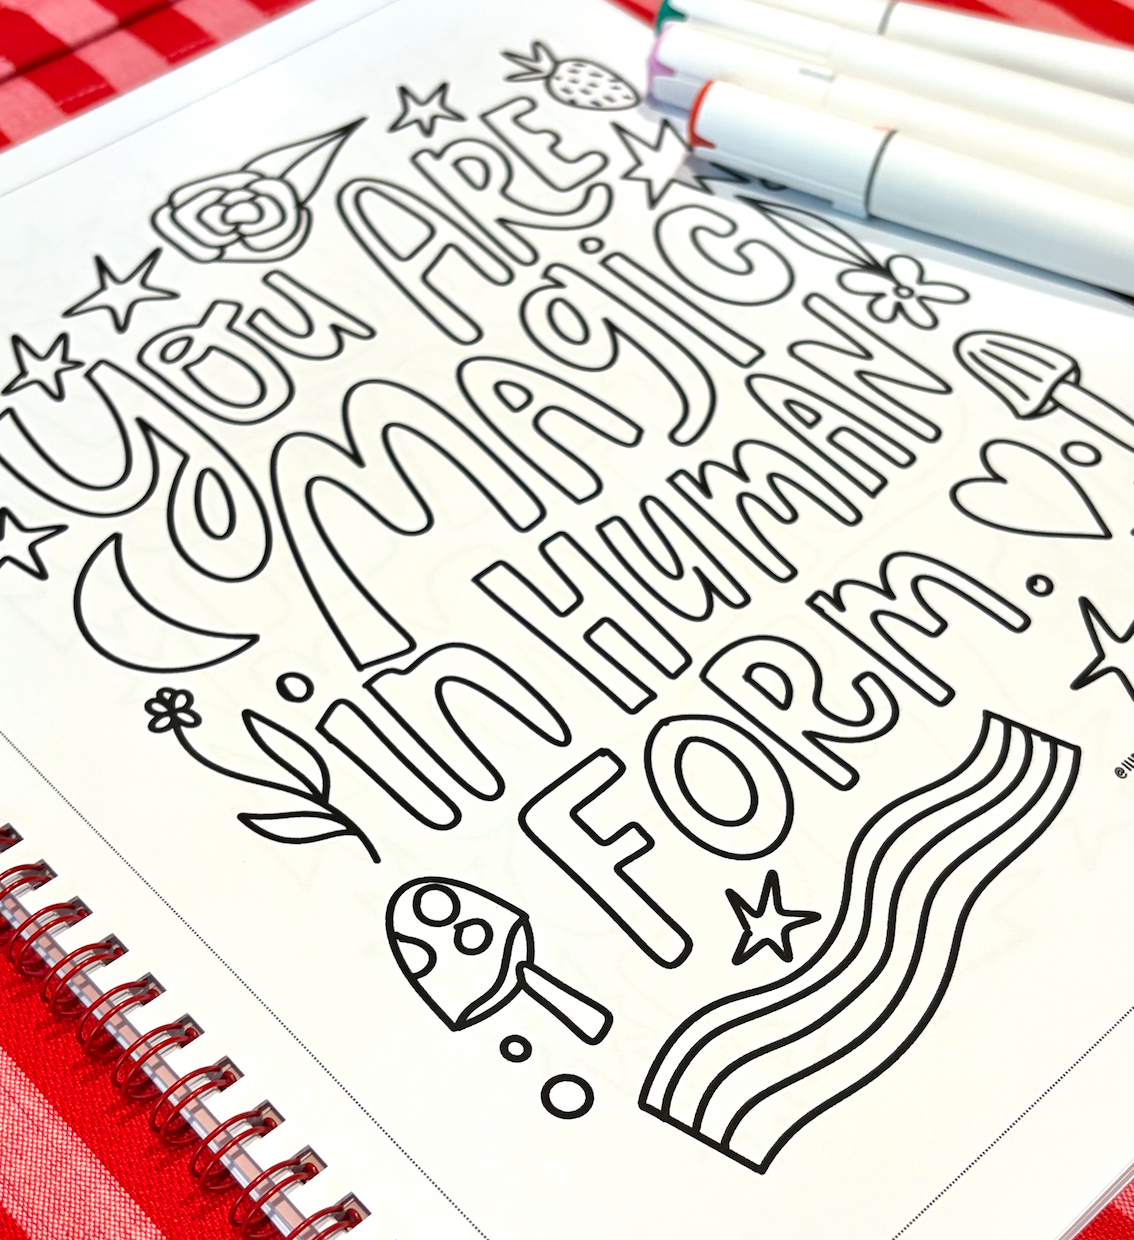 you ARE
MAgic
in HumAN
FORM.